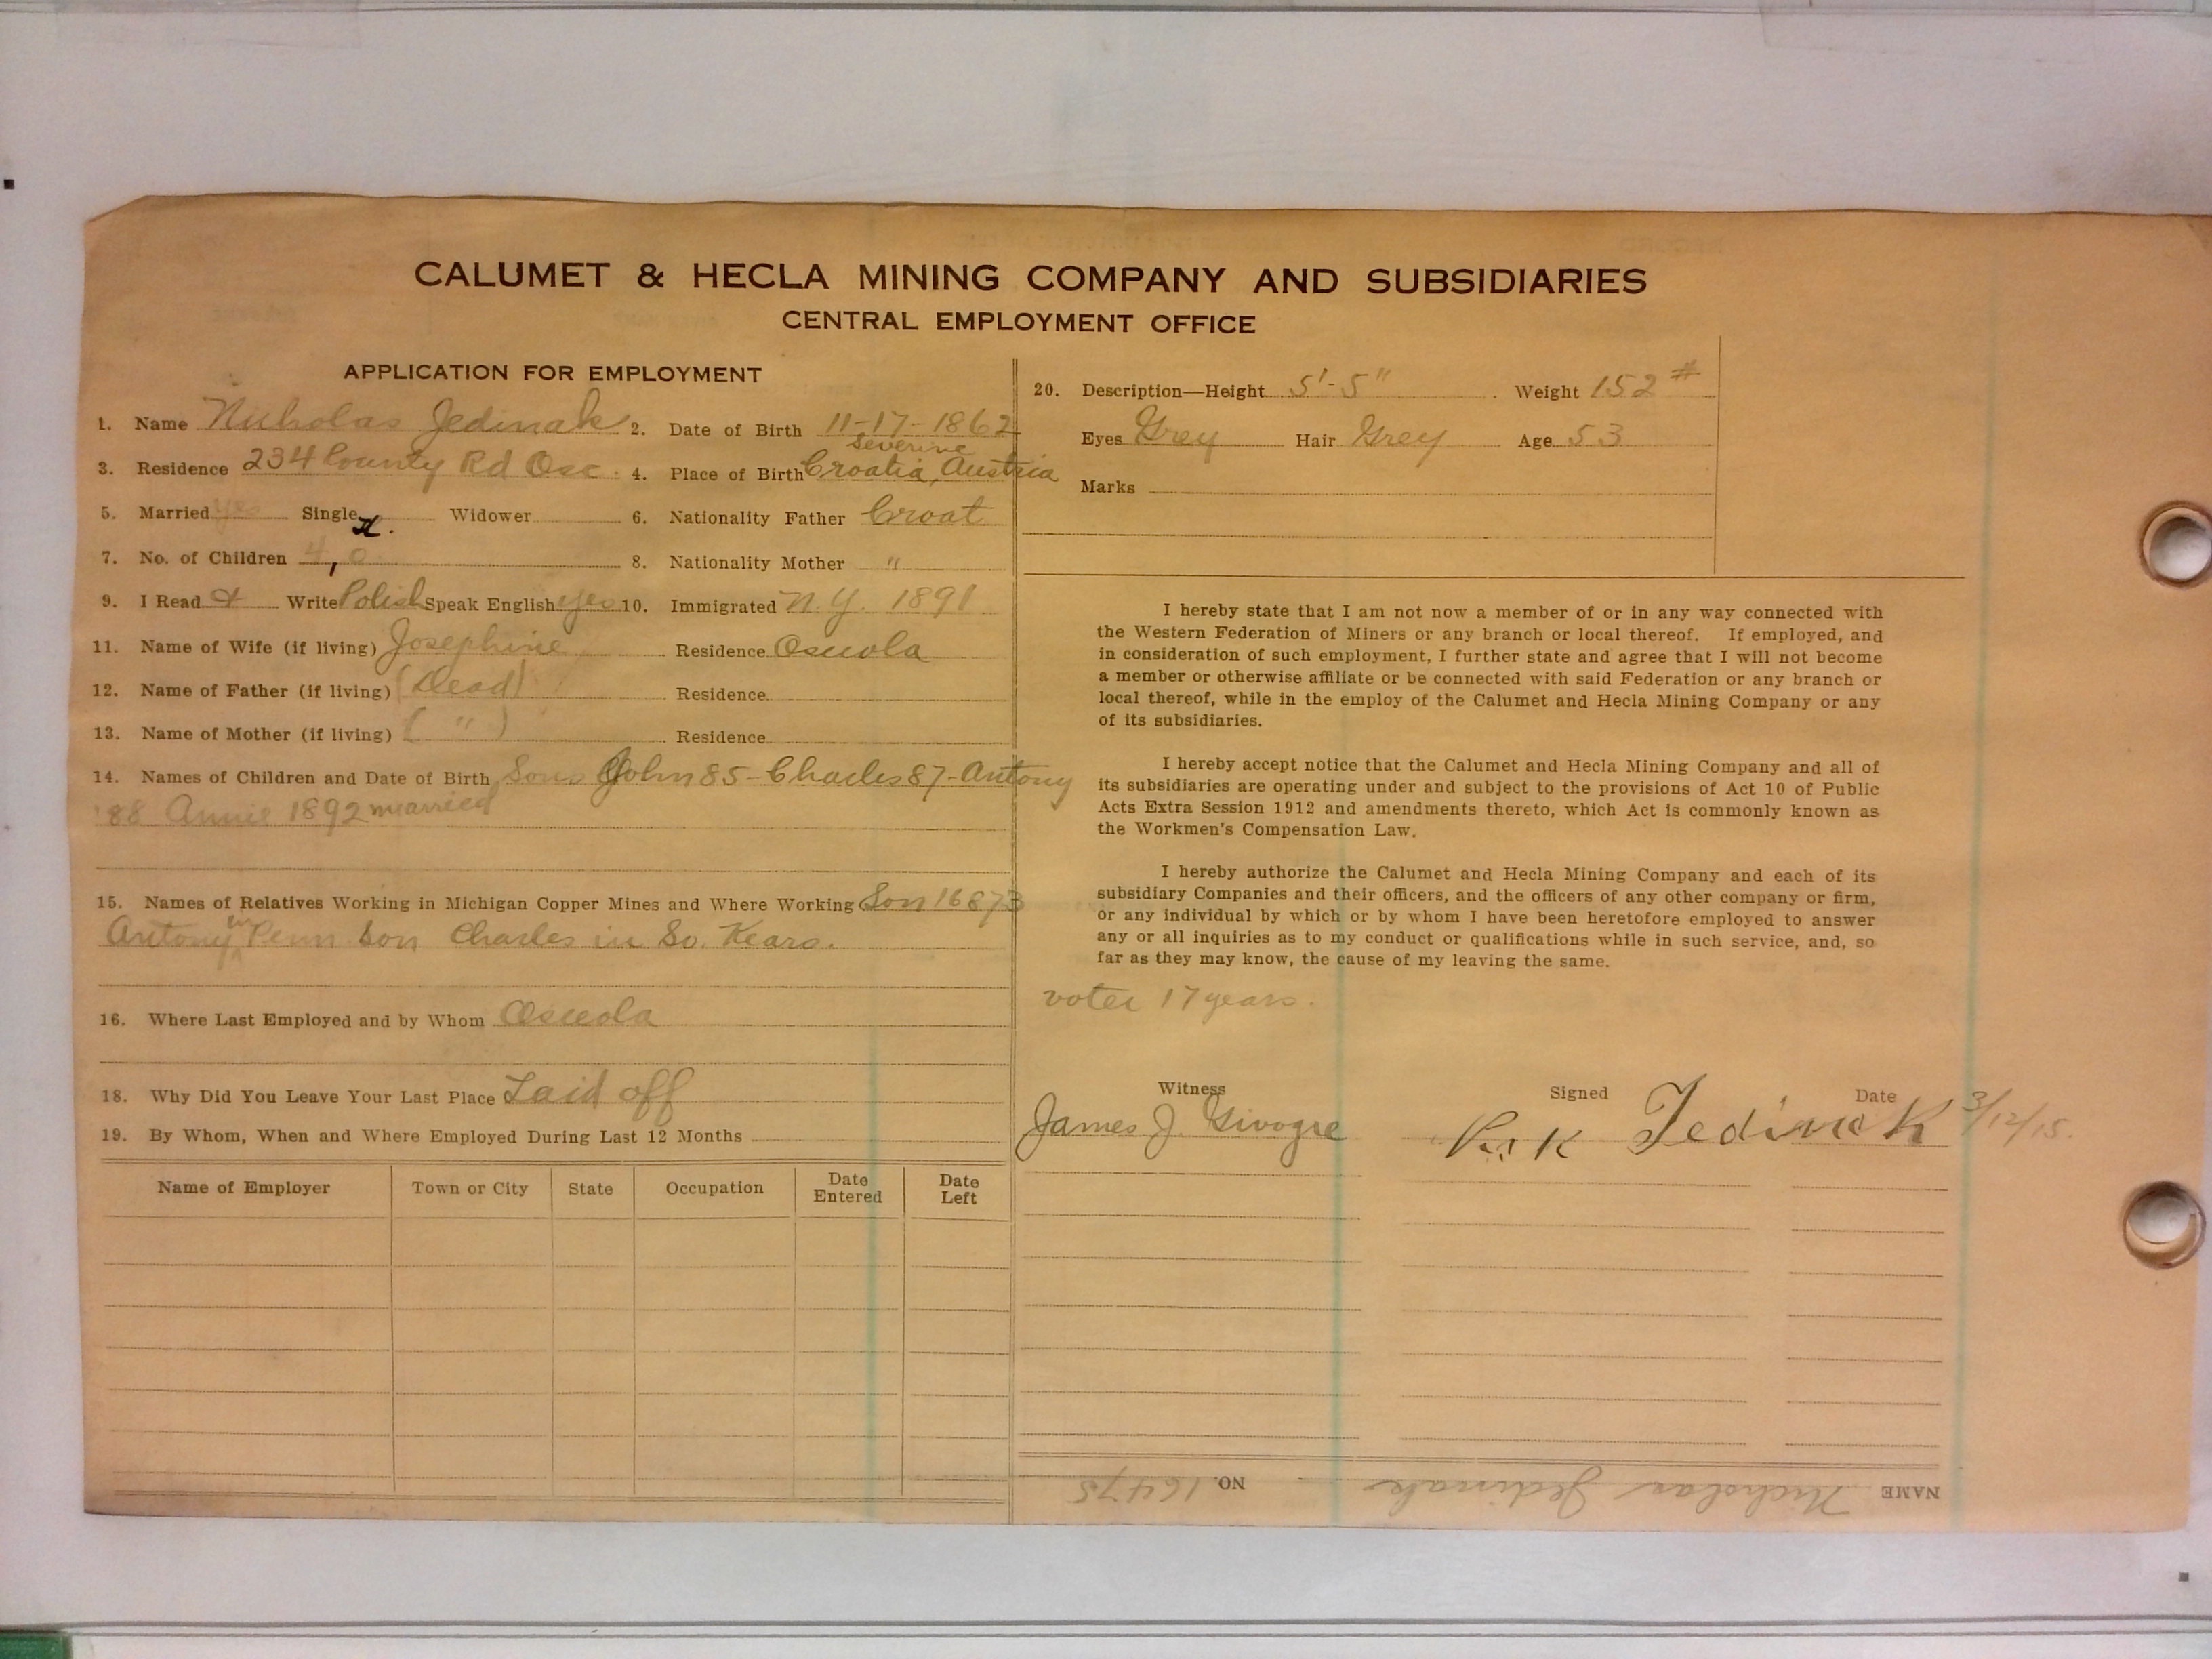 CALUMET & HECLA MINING COMPANY AND SUBSIDIARIES
CENTRAL EMPLOYMENT OFFICE
APPLICATION FOR EMPLOYMENT
1. Name Nicholas Jedinak 2. Date of Birth 11-17-1862
Severine
3. Residence 234 County Rd Osc. 4. Place of Birth Croatia, Austria
5. Married yes Single Widower 6. Nationality Father Croat
7. No. of Children 4, 0 8. Nationality Mother "
9. I Read & Write Polish Speak English yes 10. Immigrated N.Y. 1891
11. Name of Wife (if living) Josephine Residence Osceola
12. Name of Father (if living) (Dead) Residence
13. Name of Mother (if living) ( " ) Residence
14. Names of Children and Date of Birth Sons John 85-Charles 87-Antony
'88 Annie 1892 married
15. Names of Relatives Working in Michigan Copper Mines and Where Working Son 16873
Antony in Penn Son Charles in So. Kears.
16. Where Last Employed and by Whom Osceola
18. Why Did You Leave Your Last Place Laid off
19. By Whom, When and Where Employed During Last 12 Months
Name of Employer Town or City State Occupation Date Entered Date Left
20. Description—Height 5'-5" Weight 152 #
Eyes Grey Hair Grey Age 53
Marks
I hereby state that I am not now a member of or in any way connected with
the Western Federation of Miners or any branch or local thereof. If employed, and
in consideration of such employment, I further state and agree that I will not become
a member or otherwise affiliate or be connected with said Federation or any branch or
local thereof, while in the employ of the Calumet and Hecla Mining Company or any
of its subsidiaries.
I hereby accept notice that the Calumet and Hecla Mining Company and all of
its subsidiaries are operating under and subject to the provisions of Act 10 of Public
Acts Extra Session 1912 and amendments thereto, which Act is commonly known as
the Workmen's Compensation Law.
I hereby authorize the Calumet and Hecla Mining Company and each of its
subsidiary Companies and their officers, and the officers of any other company or firm,
or any individual by which or by whom I have been heretofore employed to answer
any or all inquiries as to my conduct or qualifications while in such service, and, so
far as they may know, the cause of my leaving the same.
voter 17 years.
Witness Signed Date
James J. Jedinak 3/12/15.
NAME Nicholas Jedinak NO. 16475